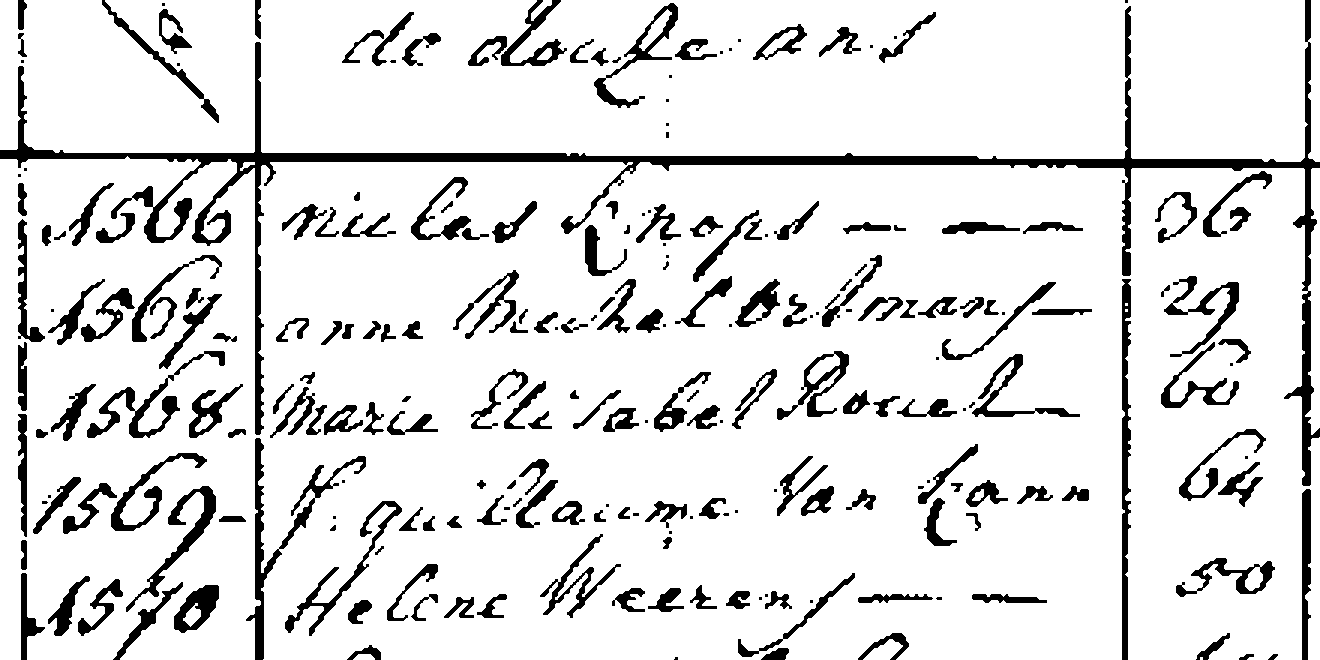 de douse ans
1566 niclas Knops — — 36
1567 anne Michel Ortmans — 29
1568 Marie Elisabet Rouch — 60
1569 guillaume Van Kann 64
1570 Helene Weerens — — 50